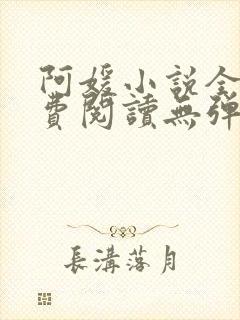 阿媛小说全
費閱讀無彈
長溝落月